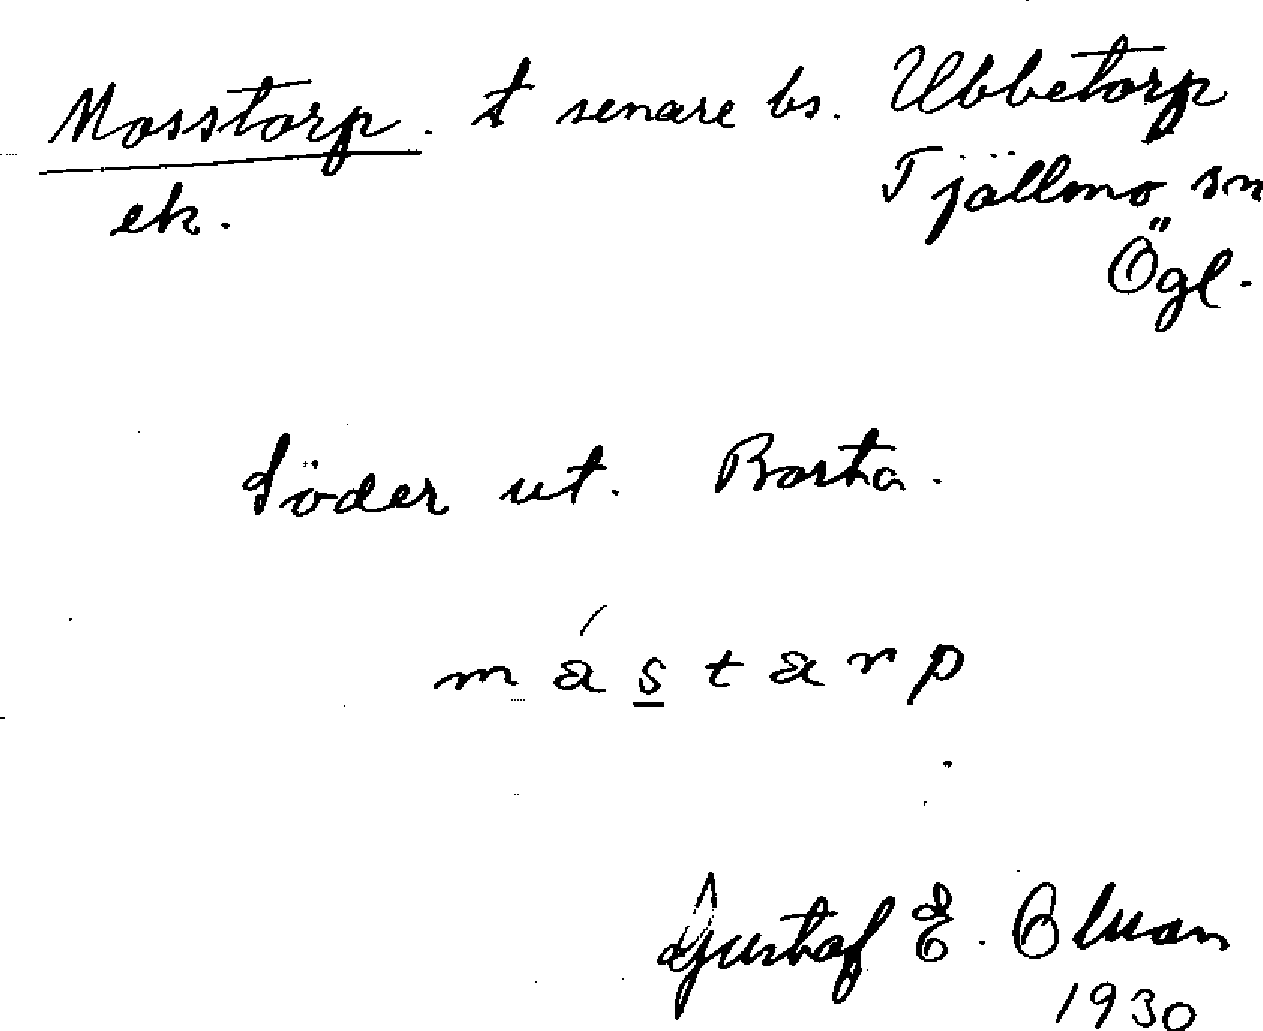 Mosstorp. t senare bs. Ubbetorp
ek. Tjällmo sn
Ögl.
Söder ut. Borta.
mástarp
Gustaf E.
1930